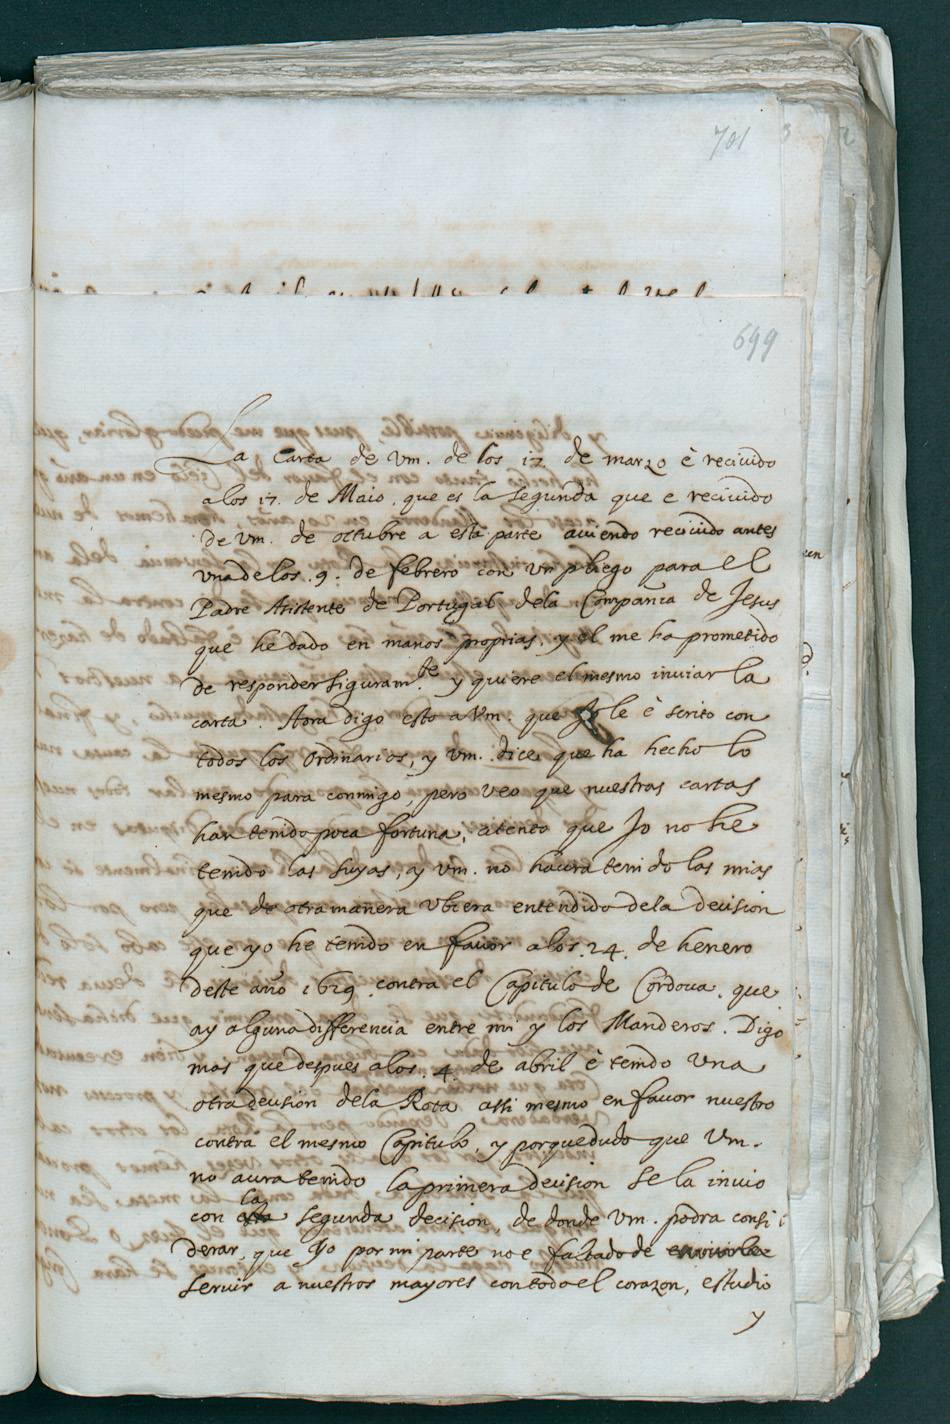 701
699
La Carta de Vm. de los 17 de marzo è recivido
a los 17. de Maio. que es la segunda que e recivido
de Vm. de octubre a esta parte aviendo recivido antes
una de los .9. de febrero con un pliego para el
Padre Asistente de Portugal dela Compañia de Jesus
que he dado en manos proprias, y el me ha prometido
de responder siguram.te y quiere el mesmo inviar la
carta. Aora digo esto a Vm. que Jo le è scrito con
todos los ordinarios, y Vm. dice que ha hecho lo
mesmo para conmigo, pero veo que nuestras cartas
han tenido poca fortuna, atento que Jo no he
tenido las suyas, y Vm. no haura tenido las mias
que de otra manera ubiera entendido dela decision
que yo he tenido en favor a los .24. de henero
deste año 1629 contra el Capitulo de Cordova. que
ay alguna differencia entre mi y los Manderos. Digo
mas que despues a los .4. de abril è tenido una
otra decision dela Rota assi mesmo en favor nuestro
contra el mesmo Capitulo, y porque dudo que Vm.
no aura tenido la primera decision se la invio
con la segunda decision, de donde Vm. podra consi
derar, que Yo por mi parte no e faltado de
servir a nuestros mayores con todo el corazon, estudio
y